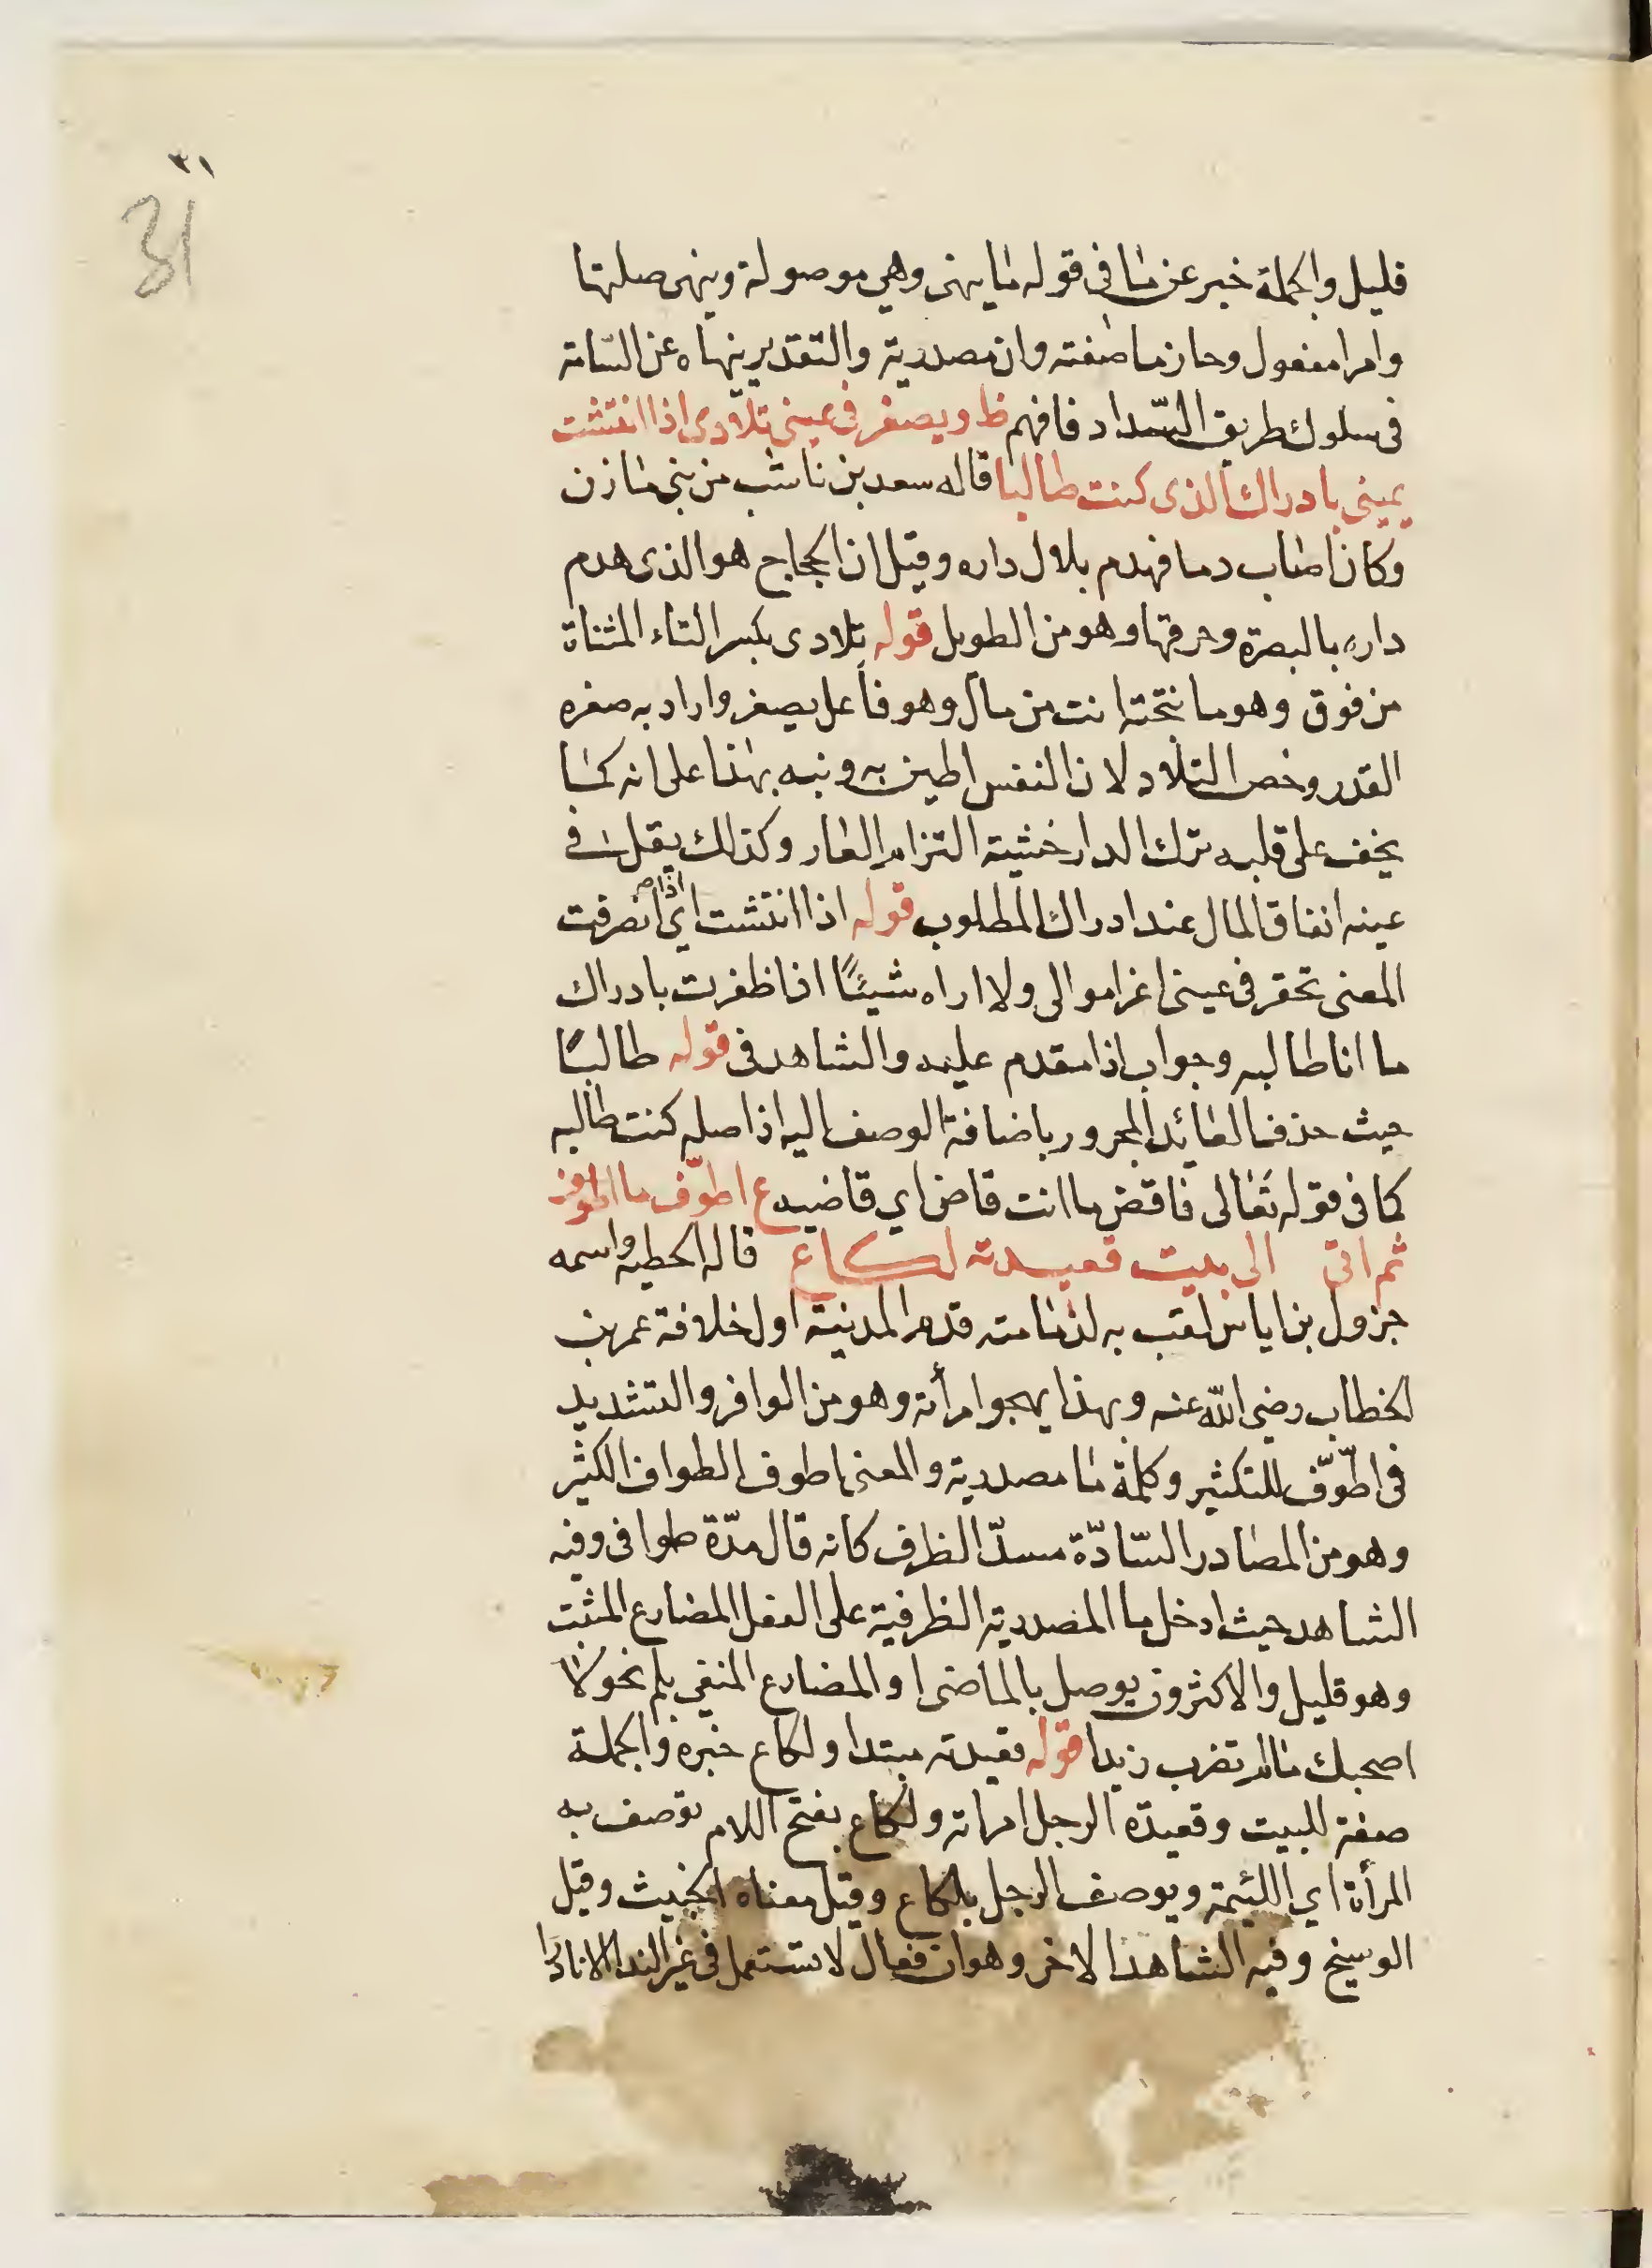 ٣١
31
قليل والجملة خبر عن ما في قوله ما ينهى وهي موصولة وينهى صلتها
وامرا مفعول وحازما صفته وان مصدرية والتقدير ينهاه عن السّامة
في سلوك طريق السّداد فافهم ظ ويصغر في عيني تلادى اذا انتشت
يميني بادراك الذى كنت طالبا قاله سعد بن ناشب من بني مازن
وكان اصاب دما فهدم بلال داره وقيل ان الحجاج هو الذى هدم
داره بالبصرة وحرقها وهو من الطويل قوله تلادى بكسر التاء المثناة
من فوق وهو ما نتجته انت من مال وهو فاعل يصغر واراد به صغره
القدر وخص التلاد لان النفس اطين به ونبه بهذا على انه كما
يخف على قلبه ترك الدار خشية التزام العار وكذلك يقل في
عينه انفاق المال عند ادراك المطلوب قوله اذا انتشت اي اذا انصرفت
المعنى تحقر في عيني اعز اموالى ولا اراه شيئًا اذا ظفرت بادراك
ما انا طالبه وجواب اذا مقدم عليه والشاهد في قوله طالبًا
حيث حذف العائد المجرور باضافة الوصف اليه اذ اصله كنت طالبه
كما في قوله تعالى فاقض ما انت قاض اي قاضيه ع اطوّف ما اطوف
ثم اتى الى بيت قعيدته لكاع قاله الحطيه واسمه
جزول بن اياس لقب به لذمامته قدم المدنية اول خلافة عمر بن
الخطاب رضي الله عنه وبهذا يهجو امرأته وهو من الوافر والتشديد
في اطّوّف للتكثير وكلمة ما مصدرية والمعنى اطوف الطواف الكثير
وهو من المصادر السّادّة مسدّ الظرف كانه قال مدّة طوافى وفيه
الشاهد حيث ادخل ما المصدرية الظرفية على الفعل المضارع المثبت
وهو قليل والاكثرون يوصل بالماضى او المضارع المنفي بلم نحو لا
اصحبك ما لم تضرب زيدا قوله قعيدته مبتدا ولكاع خبره والجملة
صفة للبيت وقعيدة الرجل امراته ولكاع بفتح اللام توصف به
المرأة اي اللئيمة ويوصف الرجل بلكاع وقيل معناه الخبيث وقيل
الوسيخ وفيه الشاهد الاخر وهو ان فعال لا تستعمل في غير الندا الا نادرا